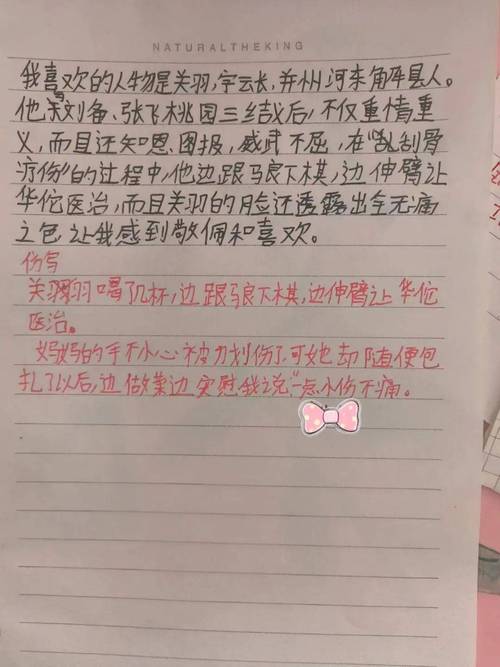 NATURALTHEKING
我喜欢的人物是关羽,字云长,并州河东解县人。
他与刘备、张飞桃园三结义后,不仅重情重
义,而且还知恩图报,威武不屈,在“刮骨
疗伤”的过程中,他边跟马良下棋,边伸臂让
华佗医治,而且关羽的脸还透露出全无痛
之色让我感到敬佩和喜欢。
仿写
关羽喝了几杯,边跟马良下棋,边伸臂让华佗
医治。
妈妈的手不小心被刀划伤了可她却随便包
扎了以后,边做菜边安慰我说“一点小伤不痛。